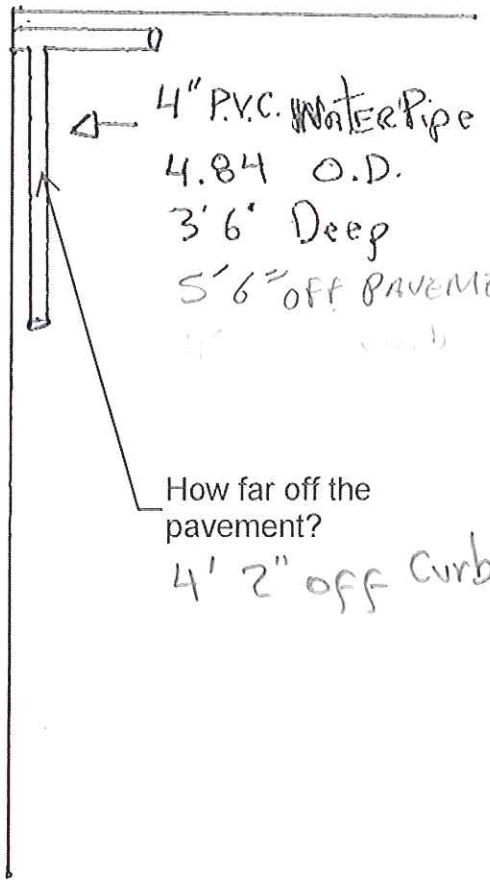 4" P.V.C. Water Pipe
4.84 O.D.
3'6" Deep
5'6" off
How far off the
pavement?
4' 2" off Curb